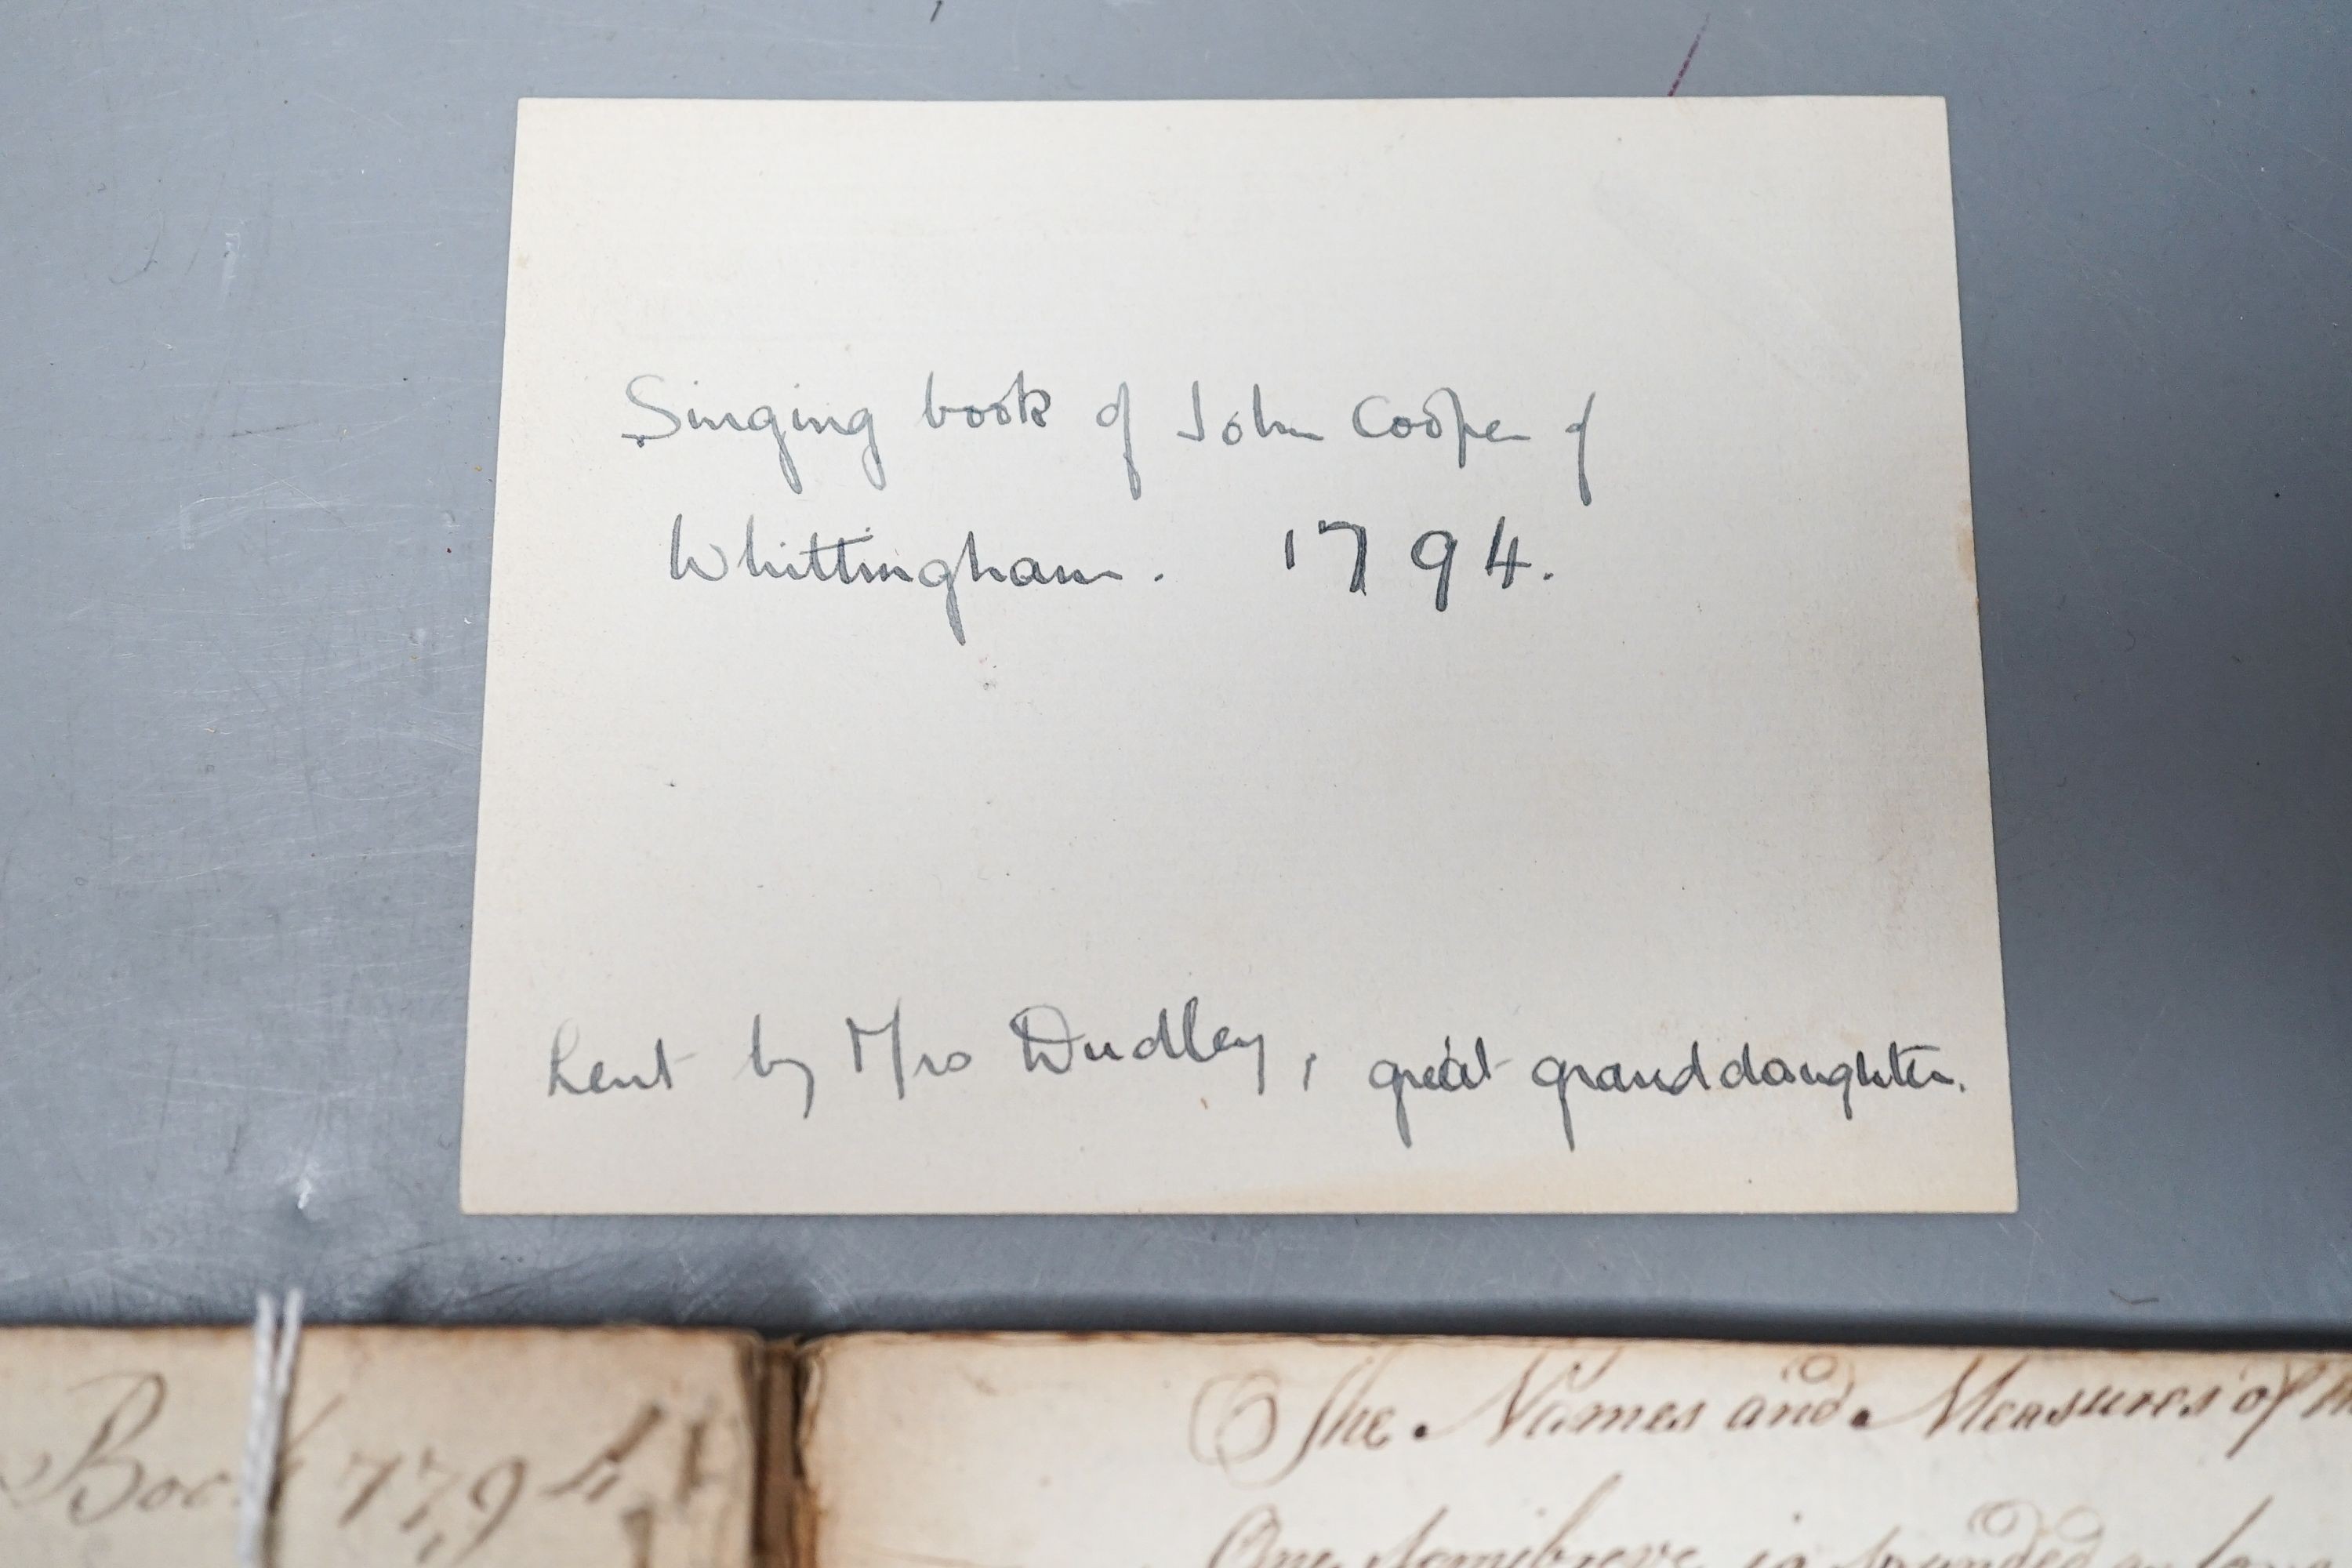 Singing book of John Cooper of
Whittingham. 1794.
Lent by Mrs Dudley, great granddaughter.
Book 1794
The Names and Measures of
One Semibreve is sounded as